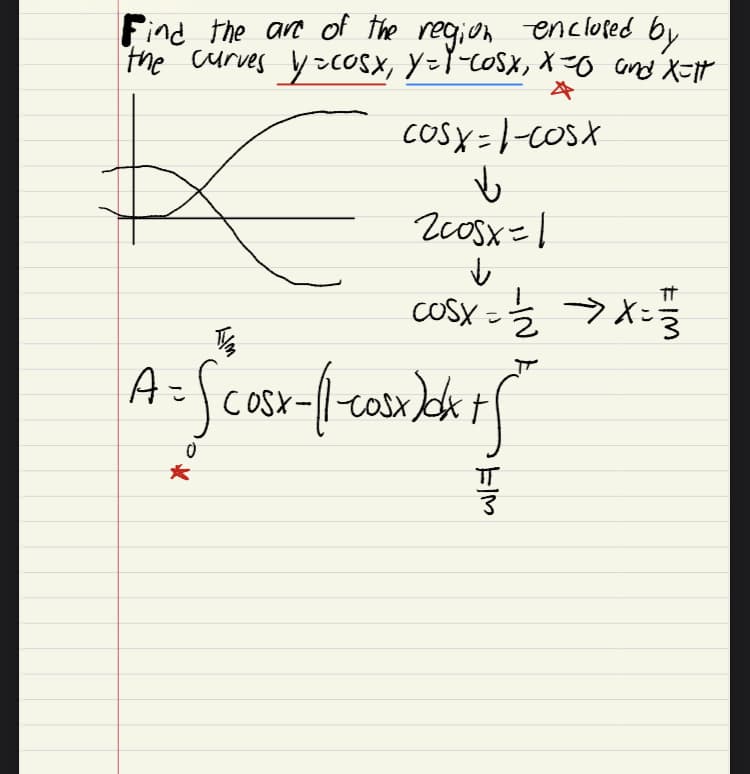 Find the arc of the region enclosed by
the curves y=cosx, y=1-cosx, x=0 and x=π
cosx=1-cosx
↓
2cosx=1
↓
cosx=1/2 → x=π/3
A=∫₀^(π/3) cosx-(1-cosx)dx+∫_(π/3)^π